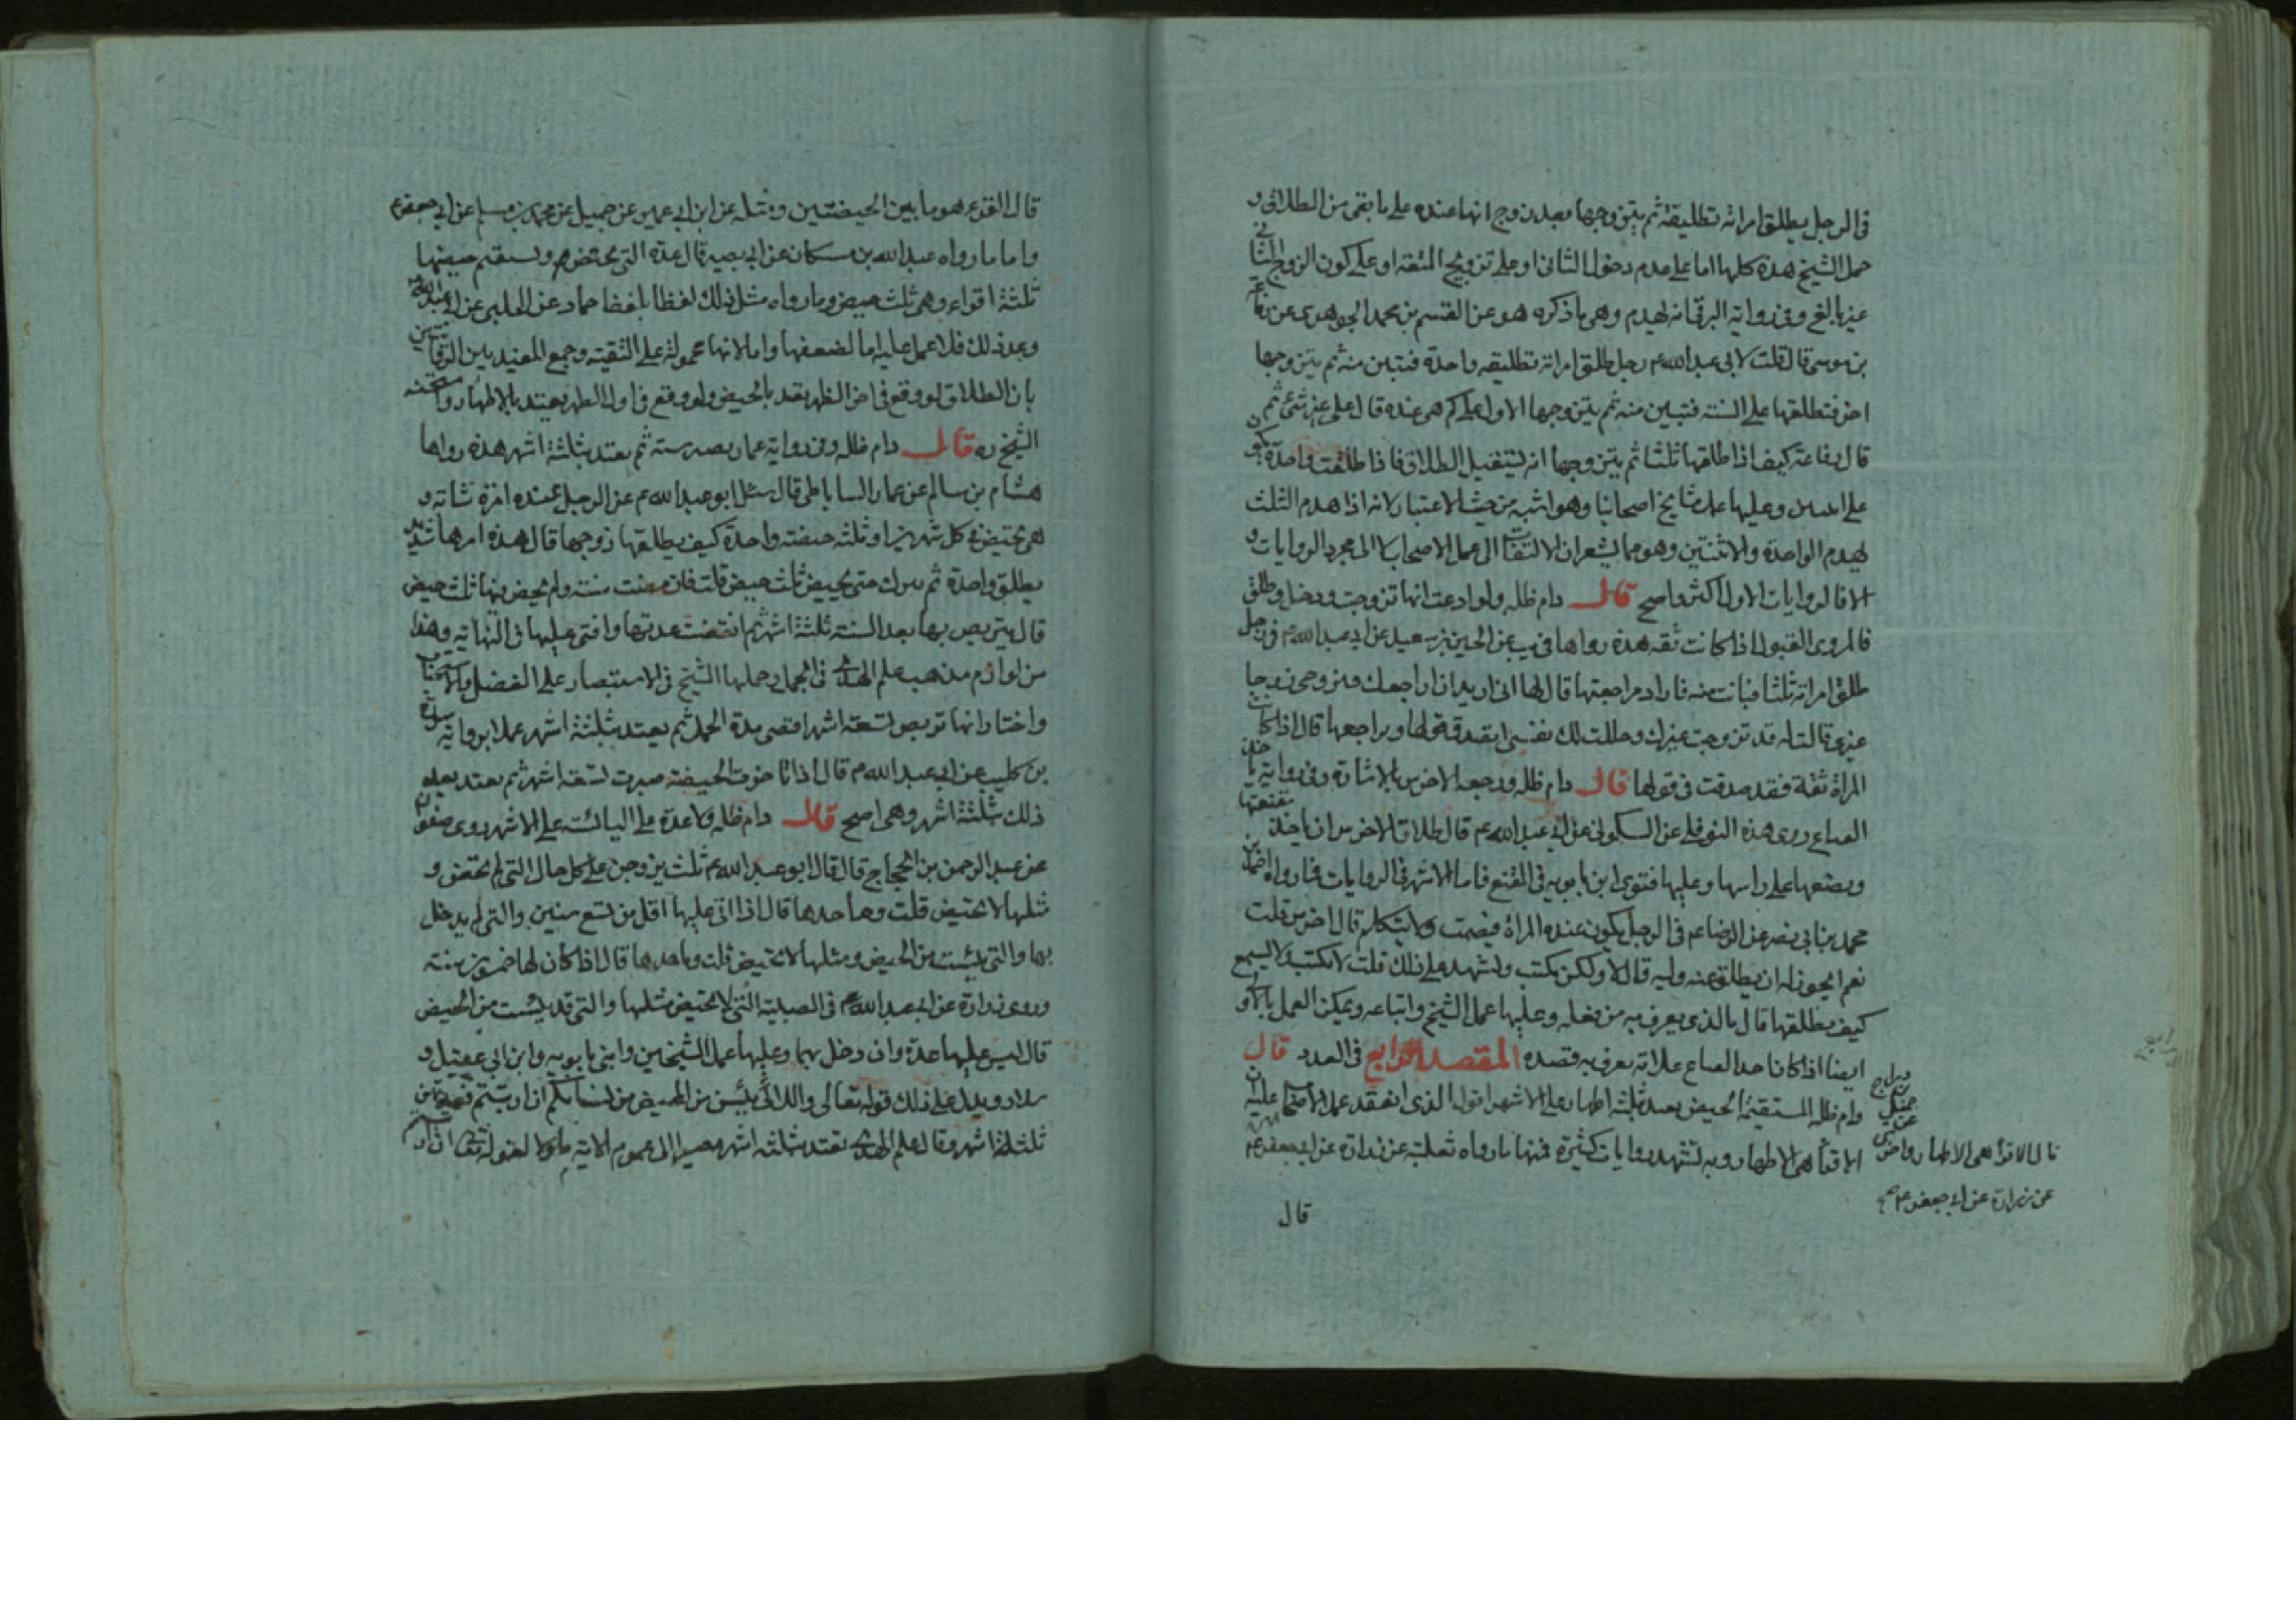 فى الرجل يطلق امراته تطليقة ثم يتزوجها بعد زوج انها عنده على ما بقى من الطلاق و
حمل الشيخ هذه كلها اما على عدم دخول الثانى او على تزويج المتعة او على كون الزوج الثانى
غير بالغ وفى رواية البرقى انه يهدم وهى ما ذكره هو عن القسم بن محمد الجوهرى عن رفاعة
بن موسى قال قلت لابى عبد الله ع رجل طلق امراته تطليقه واحدة فتبين منه ثم يتزوجها
اخر فتطلقها على السنة فتبين منه ثم يتزوجها الاول على كم هى عنده قال على غير شئ ثم
قال يا رفاعة كيف اذا طلقها ثلثا ثم يتزوجها انه يستقبل الطلاق فاذا طلقت واحدة
وعليها عمل مشايخ اصحابنا وهو اشبه من حيث الاعتبار لانه اذا هدم الثلث
يهدم الواحدة والاثنتين وهو مما يشعر ان الالتفات الى عمل الاصحاب لا الى مجرد الروايات و
الا فالروايات الاول اكثر واصح قال دام ظله ولو ادعت انها تزوجت ودخل وطلق
فالمروى القبول اذا كانت ثقه هذه رواها فى يب عن الحسين بن سعيد عن ابى عبد الله ع فى رجل
طلق امراته ثلثا فبانت منه فاراد مراجعتها قال لها انى اريد ان اراجعك فتزوجى زوجا
غيرى قالت له قد تزوجت غيرك وحللت لك نفسى ايصدق قولها ويراجعها قال اذا كانت
المراة ثقة فقد صدقت فى قولها قال دام ظله ورجعة الاخرس بالاشارة وفى رواية ياخذ
القناع روى هذه النوفلى عن السكونى عن ابى عبد الله ع قال طلاق الاخرس ان ياخذ مقنعتها
ويضعها على راسها وعليها فتوى ابن بابويه فى المقنع فاما الاشهر فى الروايات فما رواه احمد بن
محمد بن ابى نصر عن الرضا ع فى الرجل يكون عنده المراة فيصمت ولا يتكلم قال اخرس قلت
نعم ايجوز له ان يطلق عنه وليه قال لا ولكن يكتب ويشهد على ذلك قلت لا يكتب ولا يسمع
كيف يطلقها قال بالذى يعرف به من فعله وعليها عمل الشيخ واتباعه ويمكن العمل بالاولى
ايضا اذا كان اخذ القناع علامة يعرف به قصده المقصد الرابع فى العدد قال
دام ظله المستقيمة الحيض تعتد بثلثة اطهار على الاشهر اقول الذى انعقد عمل الاصحاب عليه ان
الاقراء هى الاطهار وبه تشهد روايات كثيرة فمنها ما رواه ثعلبة عن زرارة عن ابى جعفر ع
جميل
قال الاقراء هى الاطهار
عن زرارة عن ابى جعفر ع
قال
قال القرء هو ما بين الحيضتين ومثله عن ابن ابى عمير عن جميل عن محمد بن مسلم عن ابى جعفر ع
واما ما رواه عبد الله بن مسكان عن ابى بصير قال عدة التى تحيض ويستقيم حيضها
ثلثة اقراء وهى ثلث حيض وما رواه مثل ذلك لفظا بلفظ حماد عن الحلبى عن ابى عبد الله ع
وغير ذلك فلا عمل عليه اما لضعفها واما لانها محمولة على التقية وجمع المفيد بين الروايتين
بان الطلاق لو وقع فى اخر الطهر يعتد بالحيض ولو وقع فى اول الطهر يعتد بالاطهار واستحسنه
الشيخ ره قال دام ظله وفى رواية عمار يصبر سنة ثم يعتد بثلثة اشهر هذه رواها
هشام بن سالم عن عمار الساباطى قال سئل ابو عبد الله ع عن الرجل عنده امرة شابة و
هى تحيض فى كل شهرين او ثلثه حيضة واحدة كيف يطلقها زوجها قال هذه امرها شديد
يطلق واحدة ثم يترك حتى تحيض ثلث حيض قلت فان مضت سنة ولم تحض فيها ثلث حيض
قال يتربص بها بعد السنة ثلثة اشهر ثم انقضت عدتها وافتى عليها فى النهاية وهذا
من لوازم مذهب علم الهدى فى الحمل وحملها الشيخ فى الاستبصار على الفضل والاستحباب
واختار انها تربص تسعة اشهر اقصى مدة الحمل ثم يعتد بثلثة اشهر عملا برواية سورة
بن كليب عن ابى عبد الله ع قال اذا تاخرت الحيضة صبرت تسعة اشهر ثم يعتد بعد
ذلك بثلثة اشهر وهى اصح قال دام ظله ولا عدة على اليائسة على الاشهر روى صفوان
عن عبد الرحمن بن الحجاج قال قال ابو عبد الله ع ثلث يزوجن على كل حال التى لم تحض و
مثلها لا تحيض قلت وما حدها قال اذا اتى عليها اقل من تسع سنين والتى لم يدخل
بها والتى يئست من الحيض ومثلها لا تحيض قلت وما حدها قال اذا كان لها خمسون سنة
وروى زرارة عن ابى عبد الله ع فى الصبية التى لا تحيض مثلها والتى قد يئست من الحيض
قال ليس عليها عدة وان دخل بهما وعليها عمل الشيخين وابنى بابويه وابن ابى عقيل و
سلار ويدل على ذلك قوله تعالى واللائى يئسن من المحيض من نسائكم ان ارتبتم فعدتهن
ثلثة اشهر وقال علم الهدى تعتد بثلثة اشهر مصيرا الى عموم الاية